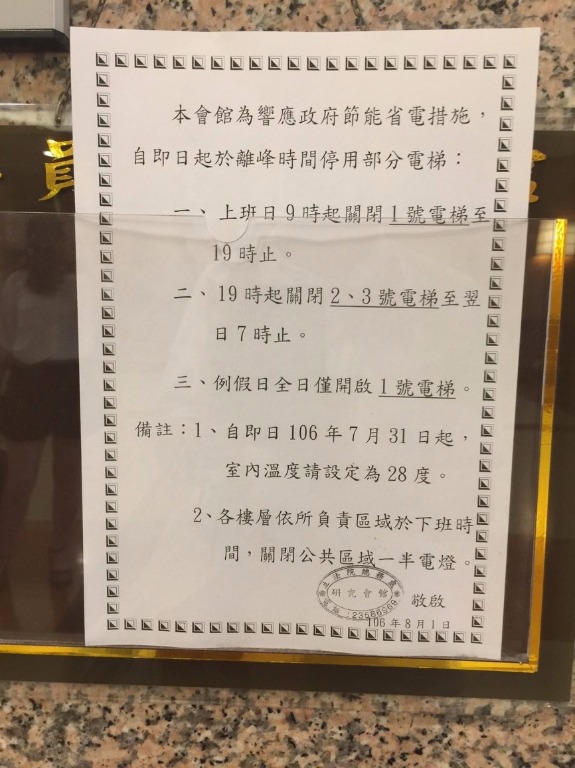 員
本會館為響應政府節能省電措施，
自即日起於離峰時間停用部分電梯：
一、上班日9時起關閉1號電梯至
19時止。
二、19時起關閉2、3號電梯至翌
日7時止。
三、例假日全日僅開啟1號電梯。
備註：1、自即日106年7月31日起，
室內溫度請設定為28度。
2、各樓層依所負責區域於下班時
間，關閉公共區域一半電燈。
立法院總務處
研究會館
敬啟
106年8月1日